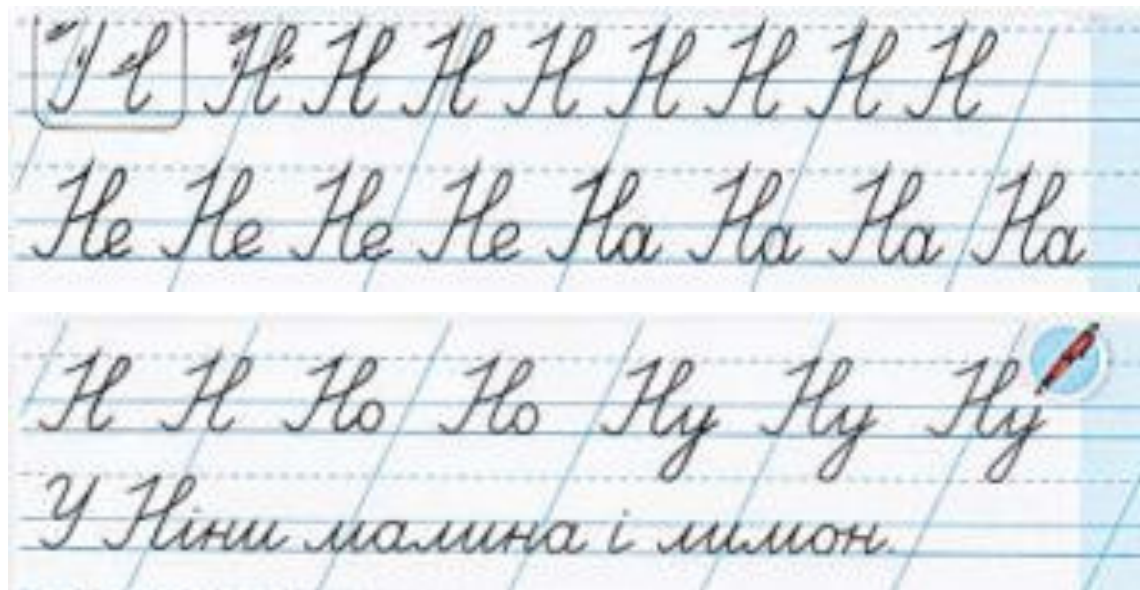 Н Н Н Н Н Н Н Н
Не Не Не Не На На На На
Н Н Но Но Ну Ну Ну
У Ніни малина і лимон.